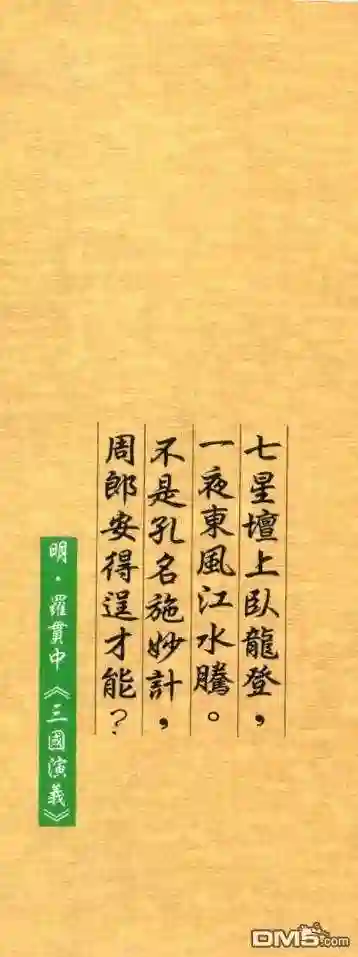 七星壇上臥龍登，
一夜東風江水騰。
不是孔名施妙計，
周郎安得逞才能？
明·羅貫中《三國演義》
DM5.com